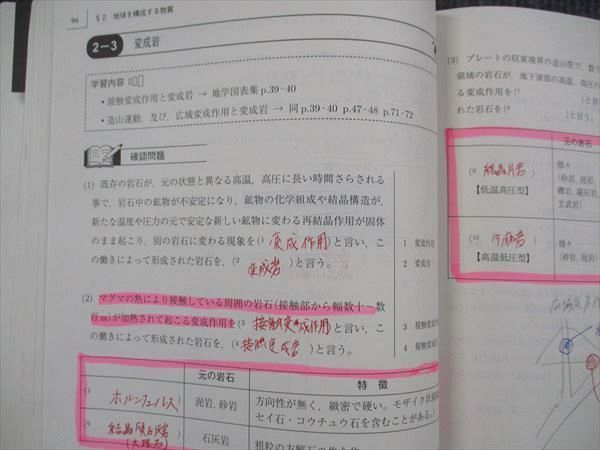 94 §2 地球を構成する物質
2-3 変成岩
学習内容
・接触変成作用と変成岩 → 地学図表集 p.39-40
・造山運動, 及び, 広域変成作用と変成岩 → 同 p.39-40 p.47-48 p.71-72
確認問題
(1) 既存の岩石が、元の状態と異なる高温, 高圧に長い時間さらされる
事で, 岩石中の鉱物が不安定になり, 鉱物の化学組成や結晶構造が,
新たな温度や圧力の元で安定な新しい鉱物に変わる再結晶作用が固体
のまま起こり, 別の岩石に変わる現象を(1 変成作用)と言い, こ
の働きによって形成された岩石を, (2 変成岩)と言う。
1 変成作用
2 変成岩
(2) マグマの熱により接触している周囲の岩石(接触部から幅数十～数
百m)が加熱されて起こる変成作用を(3 接触変成作用)と言い, こ
の働きによって形成された岩石を, (4 接触変成岩)と言う。
3 接触変成
4 接触変成
元の岩石 特徴
(5 ホルンフェルス) 泥岩, 砂岩 方向性が無く, 緻密で硬い。モザイク状
セイ石・コウチュウ石を含むことがある。
(6 結晶質石灰岩
(大理石) 石灰岩 粗粒の方解石の
(3) プレートの収束境界の造山帯で, 数十
領域の岩石が, 地下深部の高温, 高圧の
る変成作用を(7 )と言
れた岩石を(8 )と言う。
元の岩石
(9 結晶片岩)
【低温高圧型】
様々
(砂岩, 泥岩,
礫岩, 凝灰岩,
玄武岩)
(10 片麻岩)
【高温低圧型】
様々
(砂岩, 泥岩
広域変成作